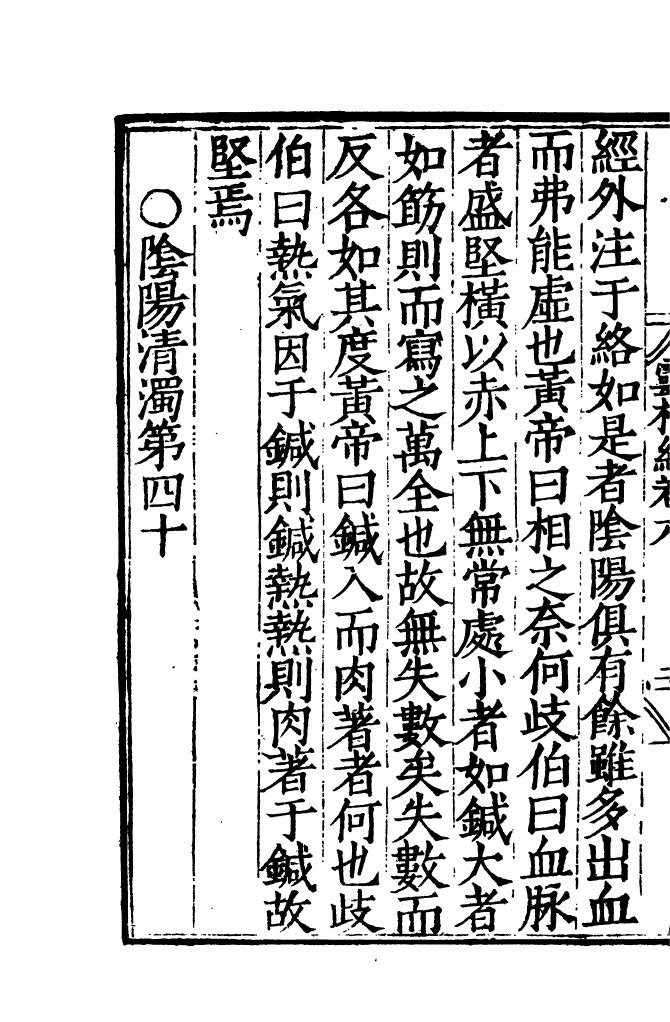 經外注于絡如是者陰陽俱有餘雖多出血
而弗能虛也黃帝曰相之奈何歧伯曰血脉
者盛堅橫以赤上下無常處小者如鍼大者
如筯則而寫之萬全也故無失數矣失數而
反各如其度黃帝曰鍼入而肉著者何也歧
伯曰熱氣因于鍼則鍼熱熱則肉著于鍼故
堅焉
○陰陽清濁第四十